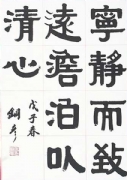 寧靜而致
遠澹泊㕥
清心
戊子春